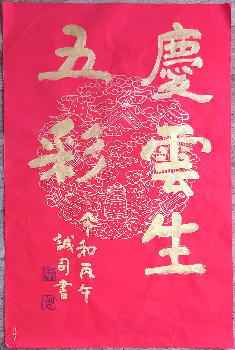 慶雲生
五彩
令和丙午
誠司書